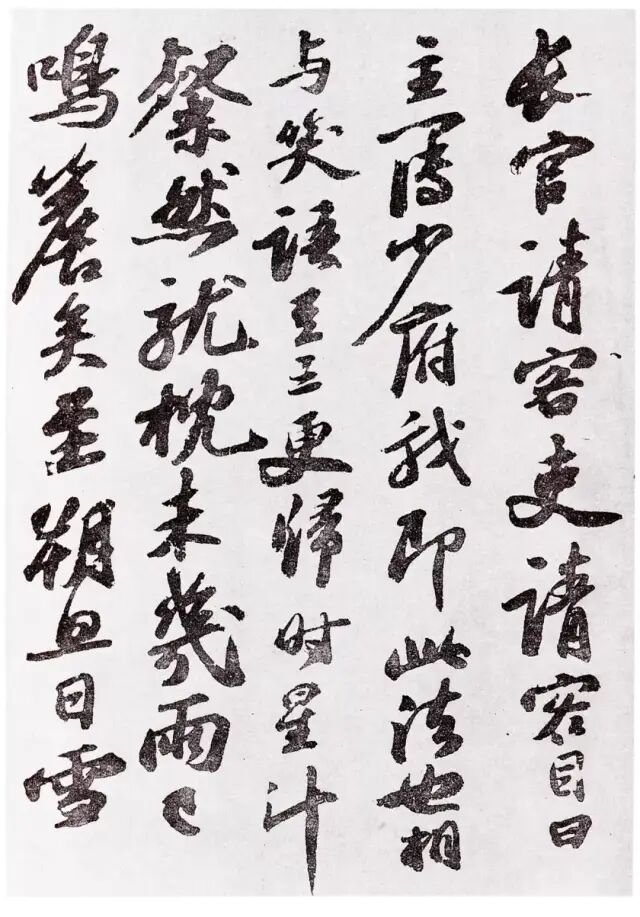 長官請客吏請客目曰
主簿少府我即此法也相
与笑語至三更歸时星斗
粲然就枕未幾雨已
鳴簷矣至朔旦日雪